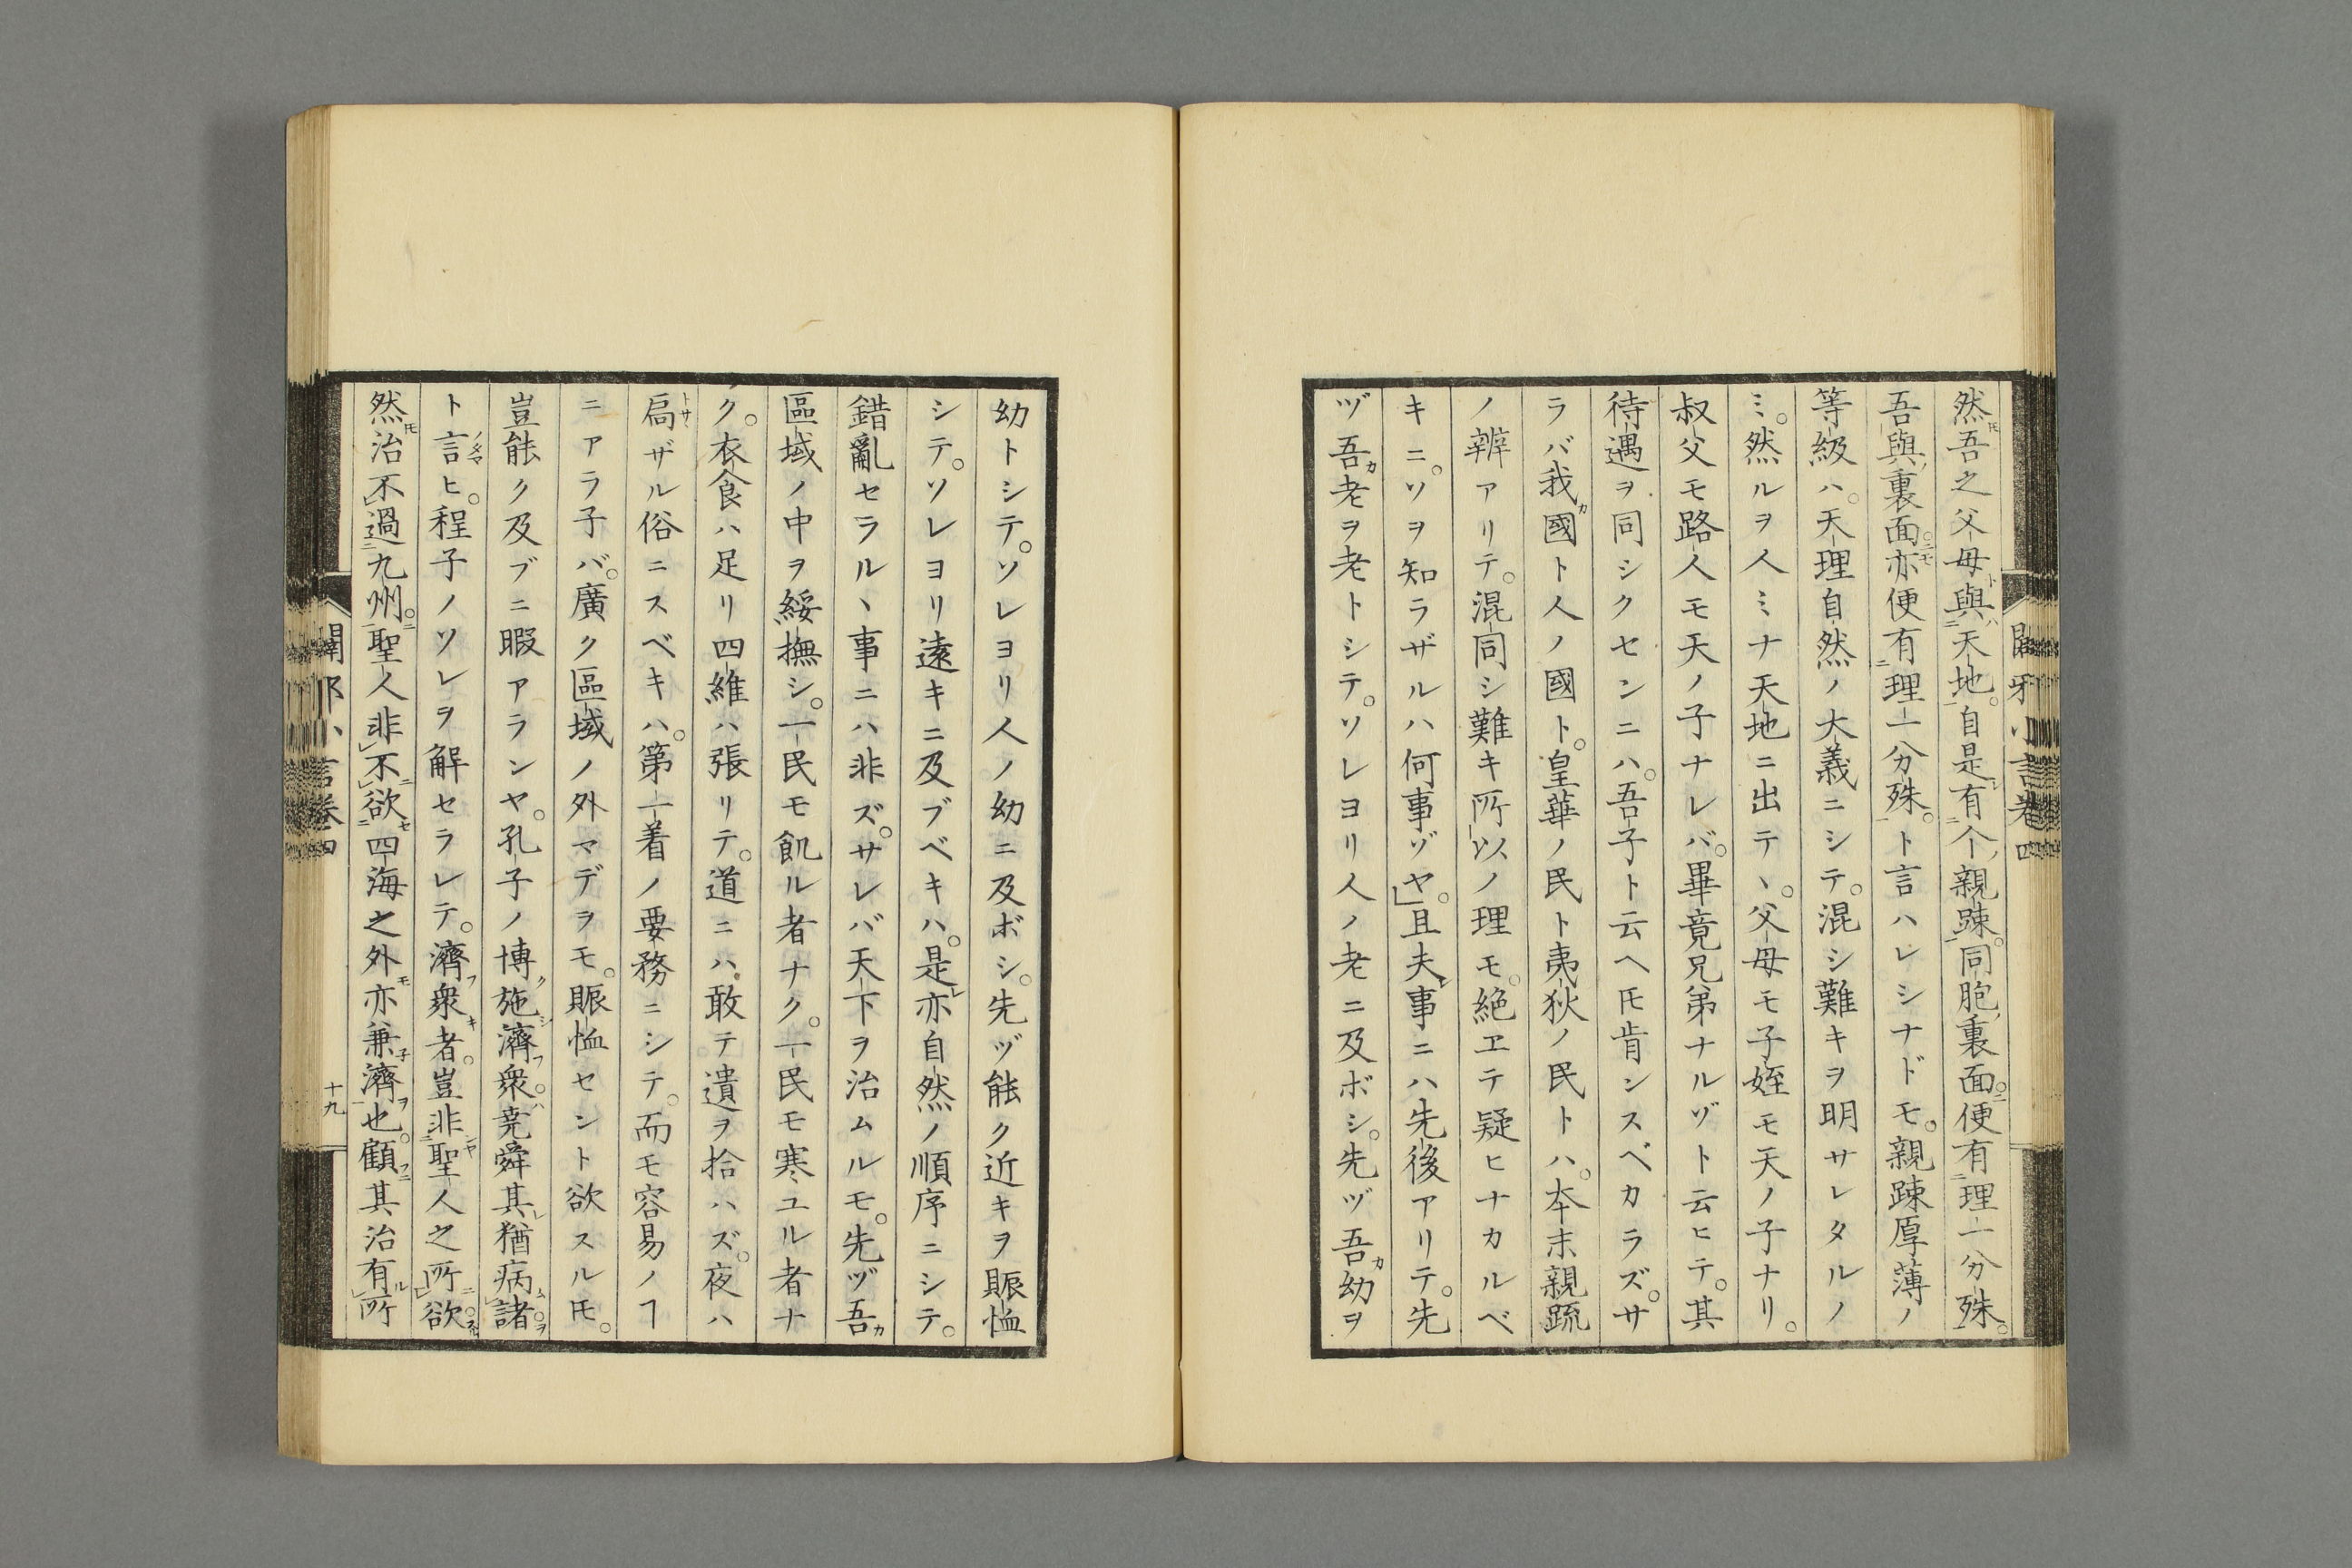 然吾之父母與天地。自是有个親踈。同胞裏面。便有理一分殊。
吾與裏面。亦便有理一分殊。ト言ハレシナドモ。親踈厚薄ノ
等級ハ。天理自然ノ大義ニシテ。混シ難キヲ明サレタルノ
ミ。然ルヲ人ミナ天地ニ出テヽ。父母モ子姪モ天ノ子ナリ。
叔父モ路人モ天ノ子ナレバ。畢竟兄弟ナルヅト云ヒテ。其
待遇ヲ同シクセンニハ。吾子ト云ヘ𪜈肯ンスベカラズ。サ
ラバ我カ國ト人ノ國ト。皇華ノ民ト夷狄ノ民トハ。本末親疏
ノ辨アリテ。混同シ難キ所以ノ理モ。絶ヱテ疑ヒナカルベ
キニ。ソヲ知ラザルハ何事ゾヤ」。且夫レ事ニハ先後アリテ。先
ヅ吾カ老ヲ老トシテ。ソレヨリ人ノ老ニ及ボシ。先ヅ吾カ幼ヲ
闢邪小言卷四
幼トシテ。ソレヨリ人ノ幼ニ及ボシ。先ヅ能ク近キヲ賑恤
シテ。ソレヨリ遠キニ及ブベキハ。是レ亦自然ノ順序ニシテ。
錯亂セラルヽ事ニハ非ズ。サレバ天下ヲ治ムルモ。先ヅ吾カ
區域ノ中ヲ綏撫シ。一民モ飢ル者ナク。一民モ寒ユル者ナ
ク。衣食ハ足リ四維ハ張リテ。道ニハ敢テ遺ヲ拾ハズ。夜ハ
扃トサザル俗ニスベキハ。第一着ノ要務ニシテ。而モ容易ノヿ
ニアラ子バ。廣ク區域ノ外マデヲモ。賑恤セント欲スル𪜈。
豈能ク及ブニ暇アランヤ。孔子ノ博ク施シ濟フ衆。ハ堯舜其レ猶病ム諸。ヲ
ト言ノタマヒ。程子ノソレヲ解セラレテ。濟フ衆キ者。豈非聖人之所欲。
然𪜈治不過九州。聖人非不欲四海之外モ亦兼子濟ヲ也。顧フニ其治有ル所
闢邪小言卷四
十九